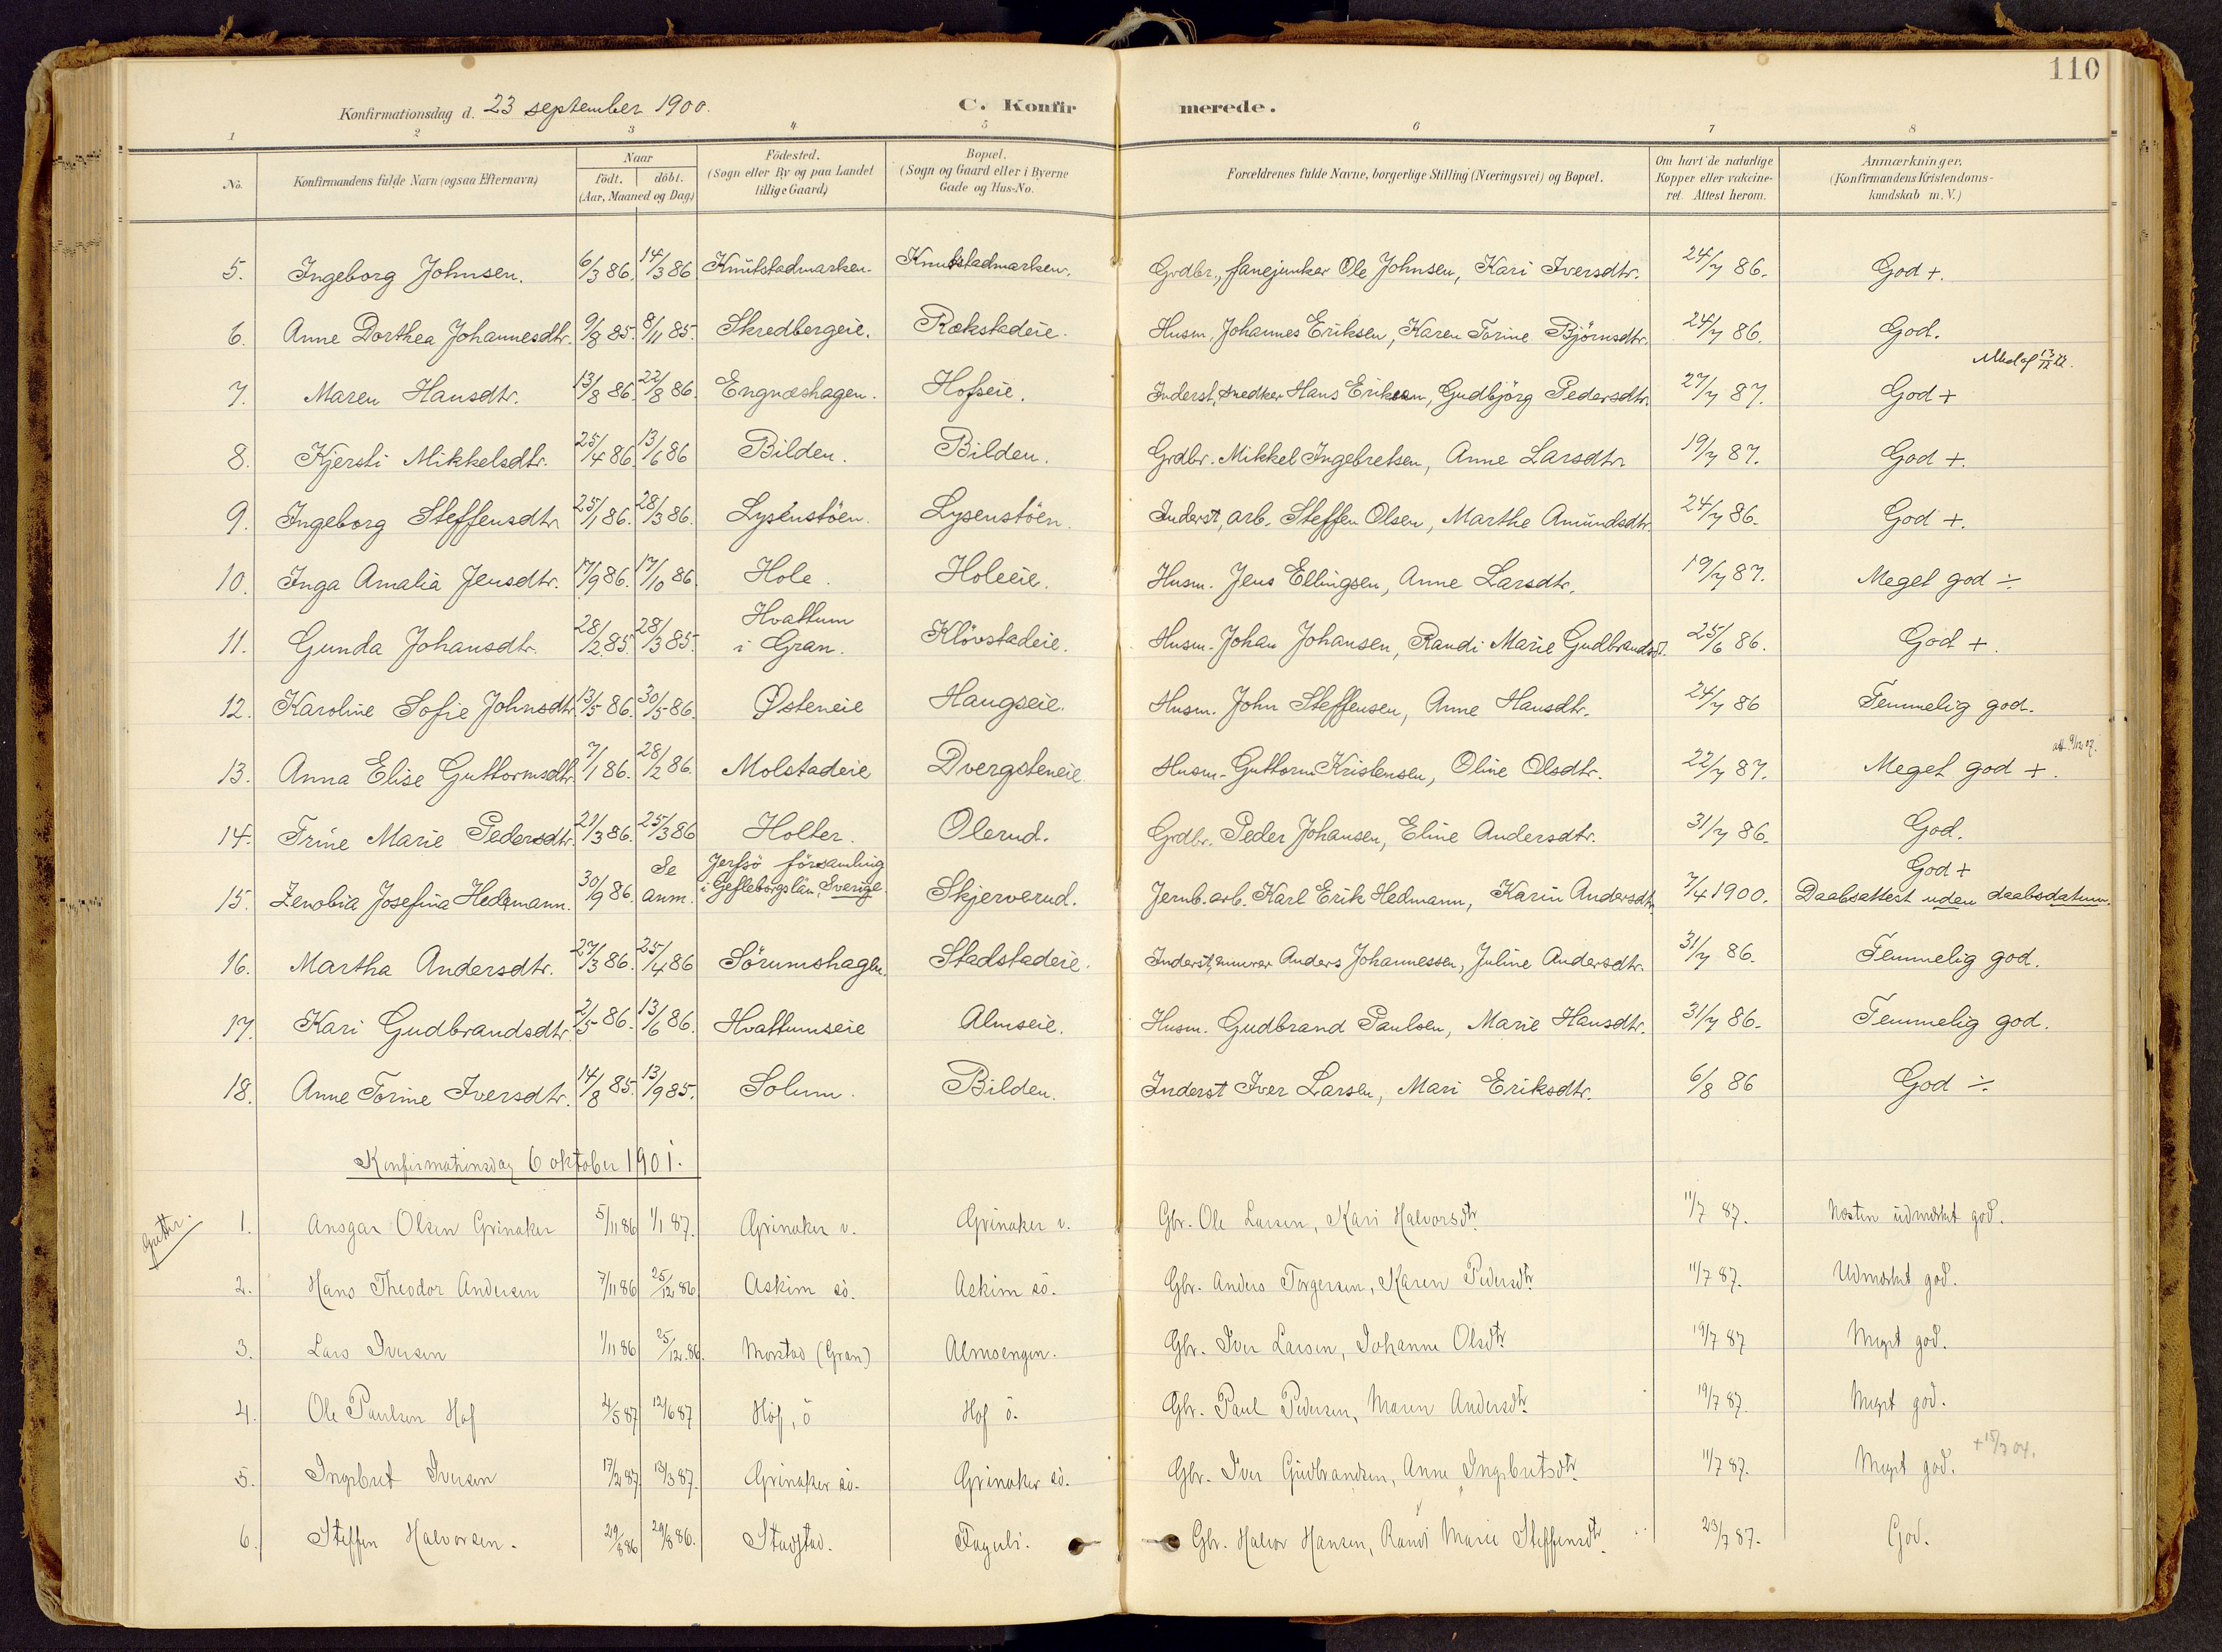 110
Konfirmationsdag d. 23 september 1900. C. Konfirmerede.
1 2 3 4 5 6 7 8
No. Konfirmandens fulde Navn (ogsaa Efternavn) Naar født. døbt. (Aar, Maaned og Dag) Fødested. (Sogn eller By og paa Landet tillige Gaard) Bopæl. (Sogn og Gaard eller i Byerne Gade og Hus-No. Forældrenes fulde Navne, borgerlige Stilling (Næringsvei) og Bopæl. Om havt de naturlige Kopper eller vakcineret. Attest herom. Anmærkninger. (Konfirmandens Kristendomskundskab m. V.)
5. Ingeborg Johnsen. 6/3 86. 14/3 86. Knutstadmarken. Knutstadmarken. Grdbr., fanejunker Ole Johnsen, Kari Iversdtr. 24/7 86. God +.
6. Anne Dorthea Johannesdtr. 9/8 85. 8/11 85. Skredbergeie. Rækstadeie. Husm. Johannes Eriksen, Karen Torine Bjørnsdtr. 24/7 86. God.
7. Maren Hansdtr. 13/8 86. 22/8 86. Engnæshagen. Hofseie. Inderst, snedker Hans Eriksen, Gudbjörg Pedersdtr. 27/7 87. God +
8. Kjersti Mikkelsdtr. 25/4 86. 13/6 86 Bilden. Bilden. Grdbr. Mikkel Ingebretsen, Anne Larsdtr. 19/7 87. God +.
9. Ingeborg Steffensdtr. 25/1 86. 28/3 86. Lysenstöen. Lysenstöen. Inderst, arb. Steffen Olsen, Marthe Amundsdtr. 24/7 86. God +.
10. Inga Amalia Jensdtr. 17/9 86. 17/10 86. Hole. Holeeie. Husm. Jens Ellingsen, Anne Larsdtr. 19/7 87. Meget god ÷
11. Gunda Johansdtr. 28/2 85. 28/3 85. Hvattum i Gran. Klövstadeie. Husm. Johan Johansen, Randi Marie Gudbrandsd. 25/6 86. God +.
12. Karoline Sofie Johnsdtr. 13/5 86. 30/5 86. Østeneie Haugseie. Husm. John Steffensen, Anne Hansdtr. 24/7 86 Temmelig god.
13. Anna Elise Guttormsdtr. 7/1 86. 28/2 86. Molstadeie Dvergsteneie Husm. Guttorm Kristensen, Oline Olsdtr. 22/7 87. Meget god +.
14. Trine Marie Pedersdtr. 21/3 86. 25/3 86 Holter. Olerud. Grdbr. Peder Johansen, Eline Andersdtr. 31/7 86. God.
15. Zenobia Josefina Hedemann. 30/9 86. Se anm. Jerfsö församling i Gefleborgslän, Sverige. Skjerverud. Jernb. arb. Karl Erik Hedmann, Karin Andersdtr. 7/4 1900. God + Daabsattest uden daabsdatum.
16. Martha Andersdtr. 27/3 86. 25/4 86 Sörumshagen. Stadstadeie. Inderst, murer Anders Johannessen, Juline Andersdtr. 31/7 86. Temmelig god.
17. Kari Gudbrandsdtr. 2/5 86. 13/6 86. Hvattumseie Almseie. Husm. Gudbrand Paulsen, Marie Hansdtr. 31/7 86. Temmelig god.
18. Anne Torine Iversdtr. 14/8 85. 13/9 85. Solum. Bilden. Inderst Iver Larsen, Mari Eriksdtr. 6/8 86 God ÷.
Konfirmationsdag 6 oktober 1901.
1. Ansgar Olsen Grinaker 5/11 86 1/1 87. Grinaker v. Grinaker v. Gbr. Ole Larsen, Kari Halvorsdtr. 11/7 87. Næsten udmærket god.
2. Hans Theodor Andersen 7/11 86 25/12 86 Askim sö. Askim sö. Gbr. Anders Torgersen, Karen Pedersdtr. 11/7 87. Udmærket god.
3. Lars Iversen 1/11 86 25/12 86. Morstad (Gran) Almsengen. Gbr. Iver Larsen, Johanne Olsdtr. 19/7 87 Meget god.
4. Ole Paulsen Hof 4/5 87 12/6 87 Hof, ö Hof ö. Gbr. Paul Pedersen, Maren Andersdtr. 19/7 87. Meget god.
5. Ingebret Iversen 17/2 87. 13/3 87. Grinaker sö. Grinaker sö. Gbr. Iver Gudbrandsen, Anne Ingebretsdtr. 11/7 87. Meget god. + 15/7 04.
6. Steffen Halvorsen. 29/8 86. Stadstad. Fagerli. Gbr. Halvor Hansen, Randi Marie Steffensdtr. 23/7 87. God.